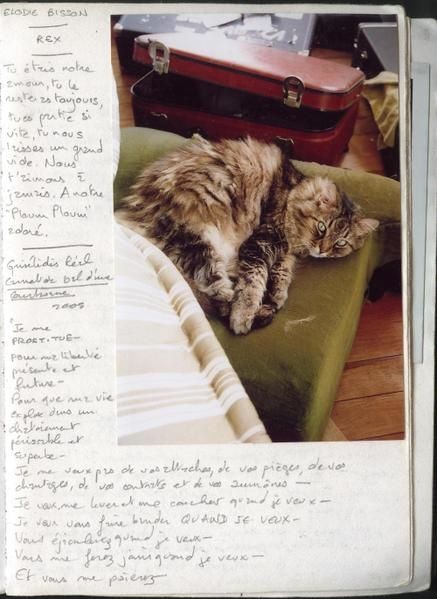 ELODIE BISSON
REX
Tu étais notre
amour, tu le
resteras toujours,
tu es partie si
vite, tu nous
laisses un grand
vide. Nous
t'aimons à
jamais. A notre
"Ploum Ploum"
adoré.
Grisélidis Réal
Carnet de bal d'une
courtisane
2005
"Je me
PROSTITUE -
pour ma liberté
présente et
future -
Pour que ma vie
explose dans un
chatoiement
périssable et
superbe -
Je ne veux pas de vos attaches, de vos pièges, de vos
chantages, de vos contrats et de vos aumônes -
Je veux me lever et me coucher quand je veux -
Je veux vous faire bander QUAND JE VEUX -
Vous éjaculerez quand je veux -
Vous me ferez jouir quand je veux -
Et vous me paierez